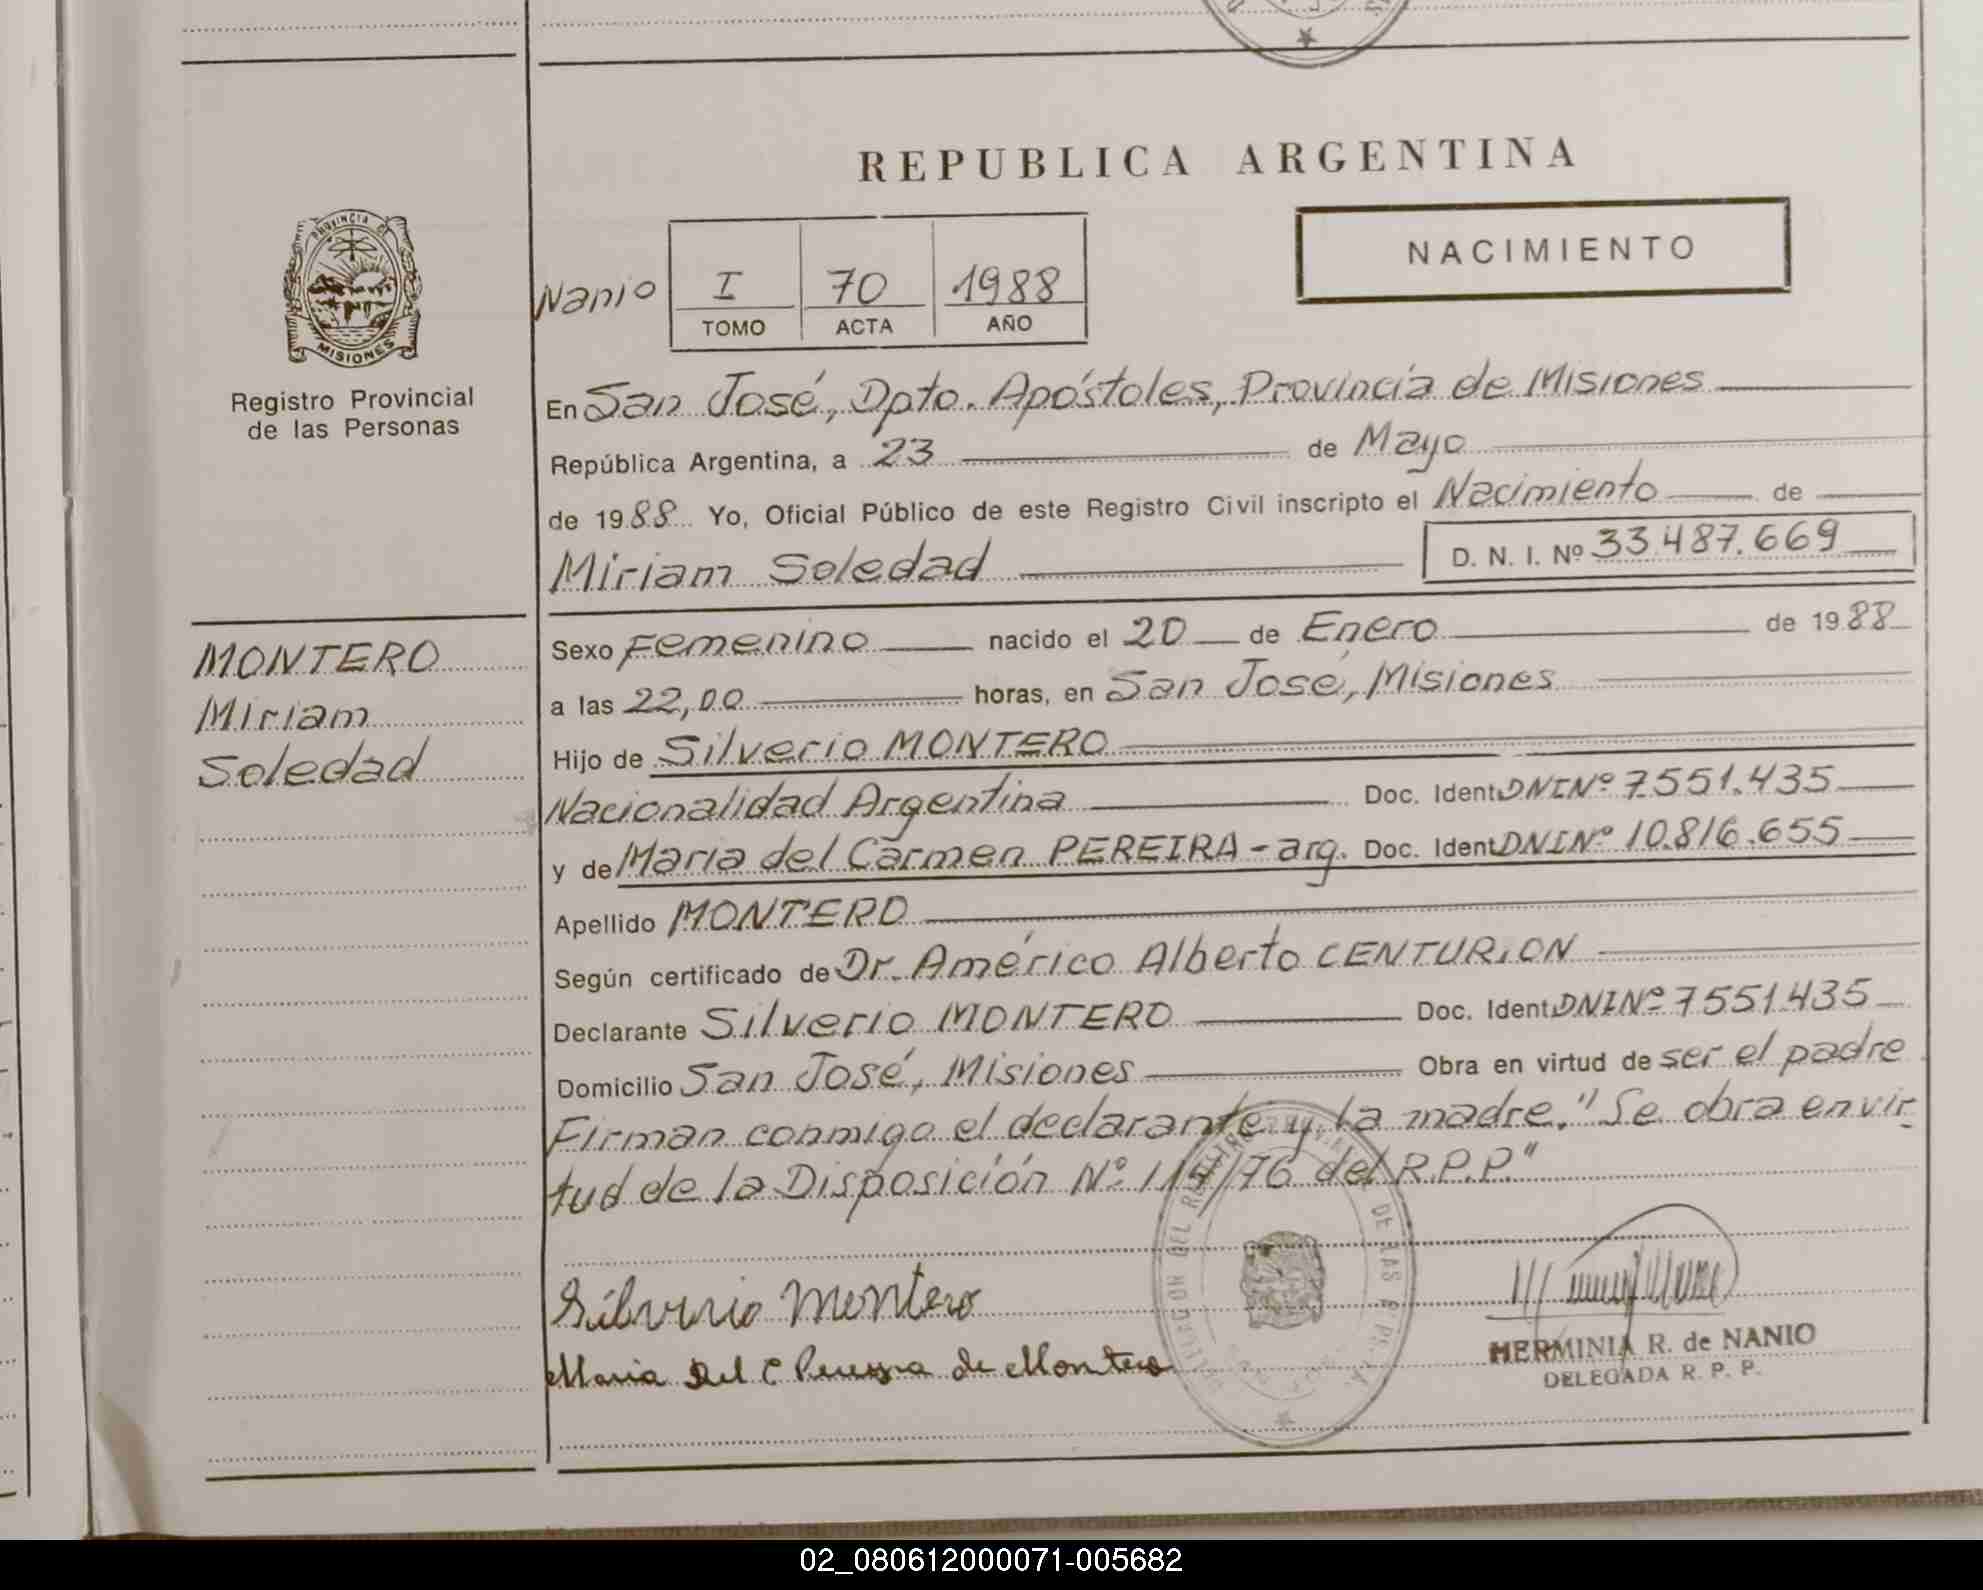 REPUBLICA ARGENTINA
PROVINCIA DE
MISIONES
Registro Provincial
de las Personas
NACIMIENTO
Nanio I 70 1988
TOMO ACTA AÑO
En San José, Dpto. Apóstoles, Provincia de Misiones
República Argentina, a 23 de Mayo
de 1988 Yo, Oficial Público de este Registro Civil inscripto el Nacimiento de
Miriam Soledad D. N. I. Nº 33.487.669
MONTERO
Miriam
Soledad
Sexo Femenino nacido el 20 de Enero de 1988
a las 22,00 horas, en San José, Misiones
Hijo de Silverio MONTERO
Nacionalidad Argentina Doc. Ident. DNI Nº 7.551.435
y de Maria del Carmen PEREIRA - arg. Doc. Ident. DNI Nº 10.816.655
Apellido MONTERO
Según certificado de Dr. Américo Alberto CENTURION
Declarante Silverio MONTERO Doc. Ident. DNI Nº 7551.435
Domicilio San José, Misiones Obra en virtud de ser el padre
Firman conmigo el declarante y la madre. "Se obra en vir-
tud de la Disposición Nº 117/76 del R.P.P."
Silverio Montero
Maria Del C Pereyra de Montero
HERMINIA R. de NANIO
DELEGADA R. P. P.
02_080612000071-005682